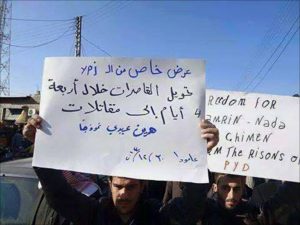 عرض خاص من الـ ypj
تحويل القاصرات خلال أربعة
أيام إلى مقاتلات
هرين عيدي نموذجاً
عامودا
REEDOM FOR
AMRIN - NADA
CHIMEN
OM THE RISONS OF
PYD